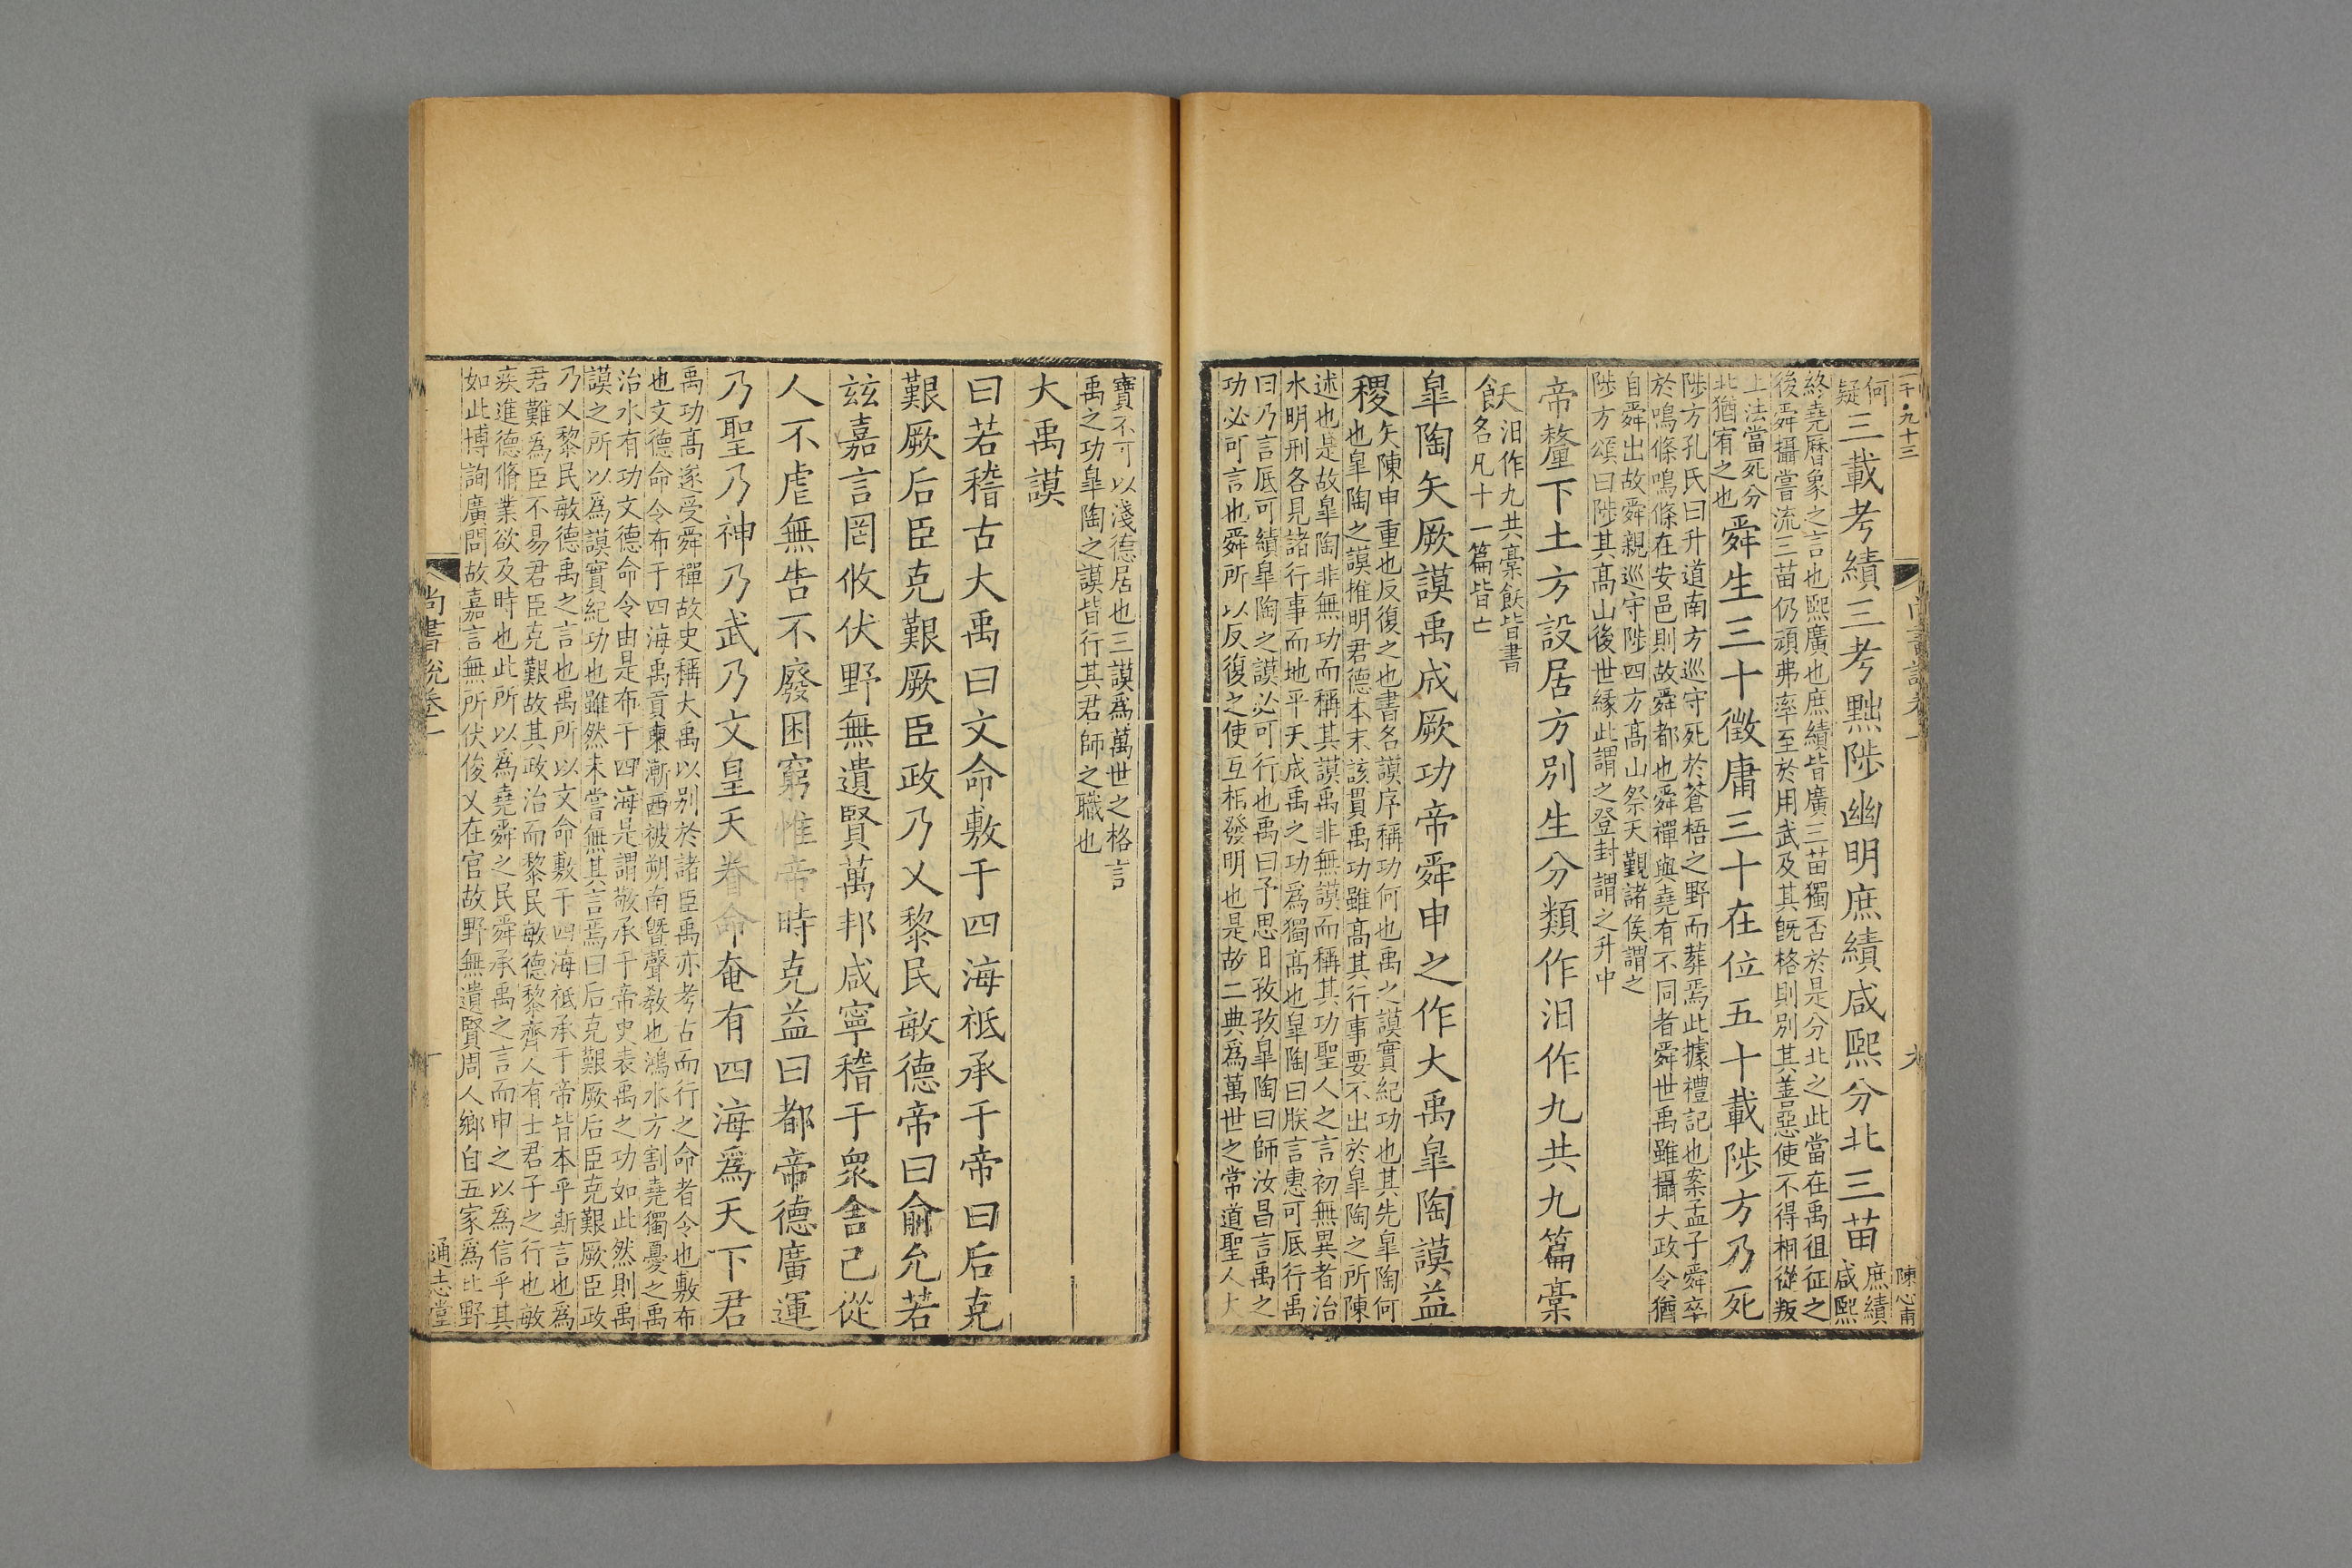 一千·九十三
陳心甫
九
何
疑
三載考績三考黜陟幽明庶績咸熙分北三苗
庶績
咸熙
終堯曆象之言也熙廣也庶績皆廣三苗獨否於是分北之此當在禹徂征之
後舜攝嘗流三苗仍頑弗率至於用武及其旣格則別其善惡使不得相從叛
上法當死分
北猶宥之也
舜生三十徵庸三十在位五十載陟方乃死
陟方孔氏曰升道南方巡守死於蒼梧之野而葬焉此據禮記也案孟子舜卒
於鳴條鳴條在安邑則故舜都也舜禪與堯有不同者舜世禹雖攝大政令猶
自舜出故舜親巡守陟四方高山祭天觀諸侯謂之
陟方頌曰陟其高山後世緣此謂之登封謂之升中
帝釐下土方設居方別生分類作汨作九共九篇稾
飫
汨作九共稾飫皆書
名凡十一篇皆亡
皐陶矢厥謨禹成厥功帝舜申之作大禹皐陶謨益
稷
矢陳申重也反復之也書名謨序稱功何也禹之謨實紀功也其先皐陶何
也皐陶之謨推明君德本末該貫禹功雖高其行事要不出於皐陶之所陳
述也是故皐陶非無功而稱其謨禹非無謨而稱其功聖人之言初無異者治
水明刑各見諸行事而地平天成禹之功爲獨高也皐陶曰朕言惠可底行禹
曰乃言底可績皐陶之謨必可行也禹曰予思日孜孜皐陶曰師汝昌言禹之
功必可言也舜所以反復之使互相發明也是故二典爲萬世之常道聖人大
寶不可以淺德居也三謨爲萬世之格言
禹之功皐陶之謨皆行其君師之職也
大禹謨
曰若稽古大禹曰文命敷于四海祗承于帝曰后克
艱厥后臣克艱厥臣政乃乂黎民敏德帝曰俞允若
茲嘉言罔攸伏野無遺賢萬邦咸寧稽于衆舍己從
人不虐無告不廢困窮惟帝時克益曰都帝德廣運
乃聖乃神乃武乃文皇天眷命奄有四海爲天下君
禹功高遂受舜禪故史稱大禹以別於諸臣禹亦考古而行之命者令也敷布
也文德命令布于四海禹貢東漸西被朔南曁聲敎也鴻水方割堯獨憂之禹
治水有功文德命令由是布于四海是謂敬承乎帝史表禹之功如此然則禹
謨之所以爲謨實紀功也雖然未嘗無其言焉曰后克艱厥后臣克艱厥臣政
乃乂黎民敏德禹之言也禹所以文命敷于四海祗承于帝皆本乎斯言也爲
君難爲臣不易君臣克艱故其政治而黎民敏德黎齊人有士君子之行也敏
疾進德脩業欲及時也此所以爲堯舜之民舜承禹之言而申之以爲信乎其
如此博詢廣問故嘉言無所伏俊乂在官故野無遺賢周人鄉自五家爲比野
尚書說卷二
一
通志堂